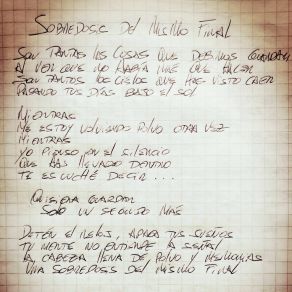 SOBREDOSIS DEL MISMO FINAL
SON TANTAS LAS COSAS QUE DEBIMOS GUARDAR
AL VER QUE NO HABÍA MÁS QUE HACER
SON TANTOS LOS CIELOS QUE HAS VISTO CAER
PASANDO TUS DÍAS BAJO EL SOL
MIENTRAS
ME ESTOY VOLVIENDO POLVO OTRA VEZ
MIENTRAS
YO PIENSO EN EL SILENCIO
QUE HAS LLEVADO DENTRO
TE ESCUCHÉ DECIR...
QUISIERA GUARDAR
SOLO UN SEGUNDO MÁS
DETÉN EL RELOJ, APAGA TUS SUEÑOS
TU MENTE NO ENTIENDE LA SEÑAL
LA CABEZA LLENA DE POLVO Y
UNA SOBREDOSIS DEL MISMO FINAL